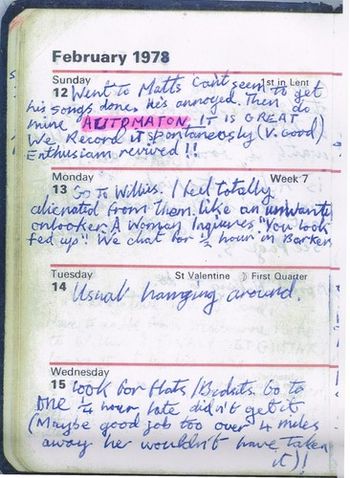 February 1978
Sunday 1st in Lent
12 Went to Matts Can't seem to get
his songs done. He's annoyed. Then do
mine AUTOMATON IT IS GREAT
We Record it spontaneously (V. Good)
Enthusiasm revived!!
Monday Week 7
13 Go To Willies. I feel totally
alienated from them like an unwanted
onlooker. A Woman Inquires "You look
fed up" We chat for ½ hour in Barker
Tuesday St Valentine First Quarter
14 Usual hanging around.
Wednesday
15 look for flats/Bedsits. Go to
one ¼ hour late didn't get it
(Maybe good job too over 4 miles
away her wouldn't have taken
it)!